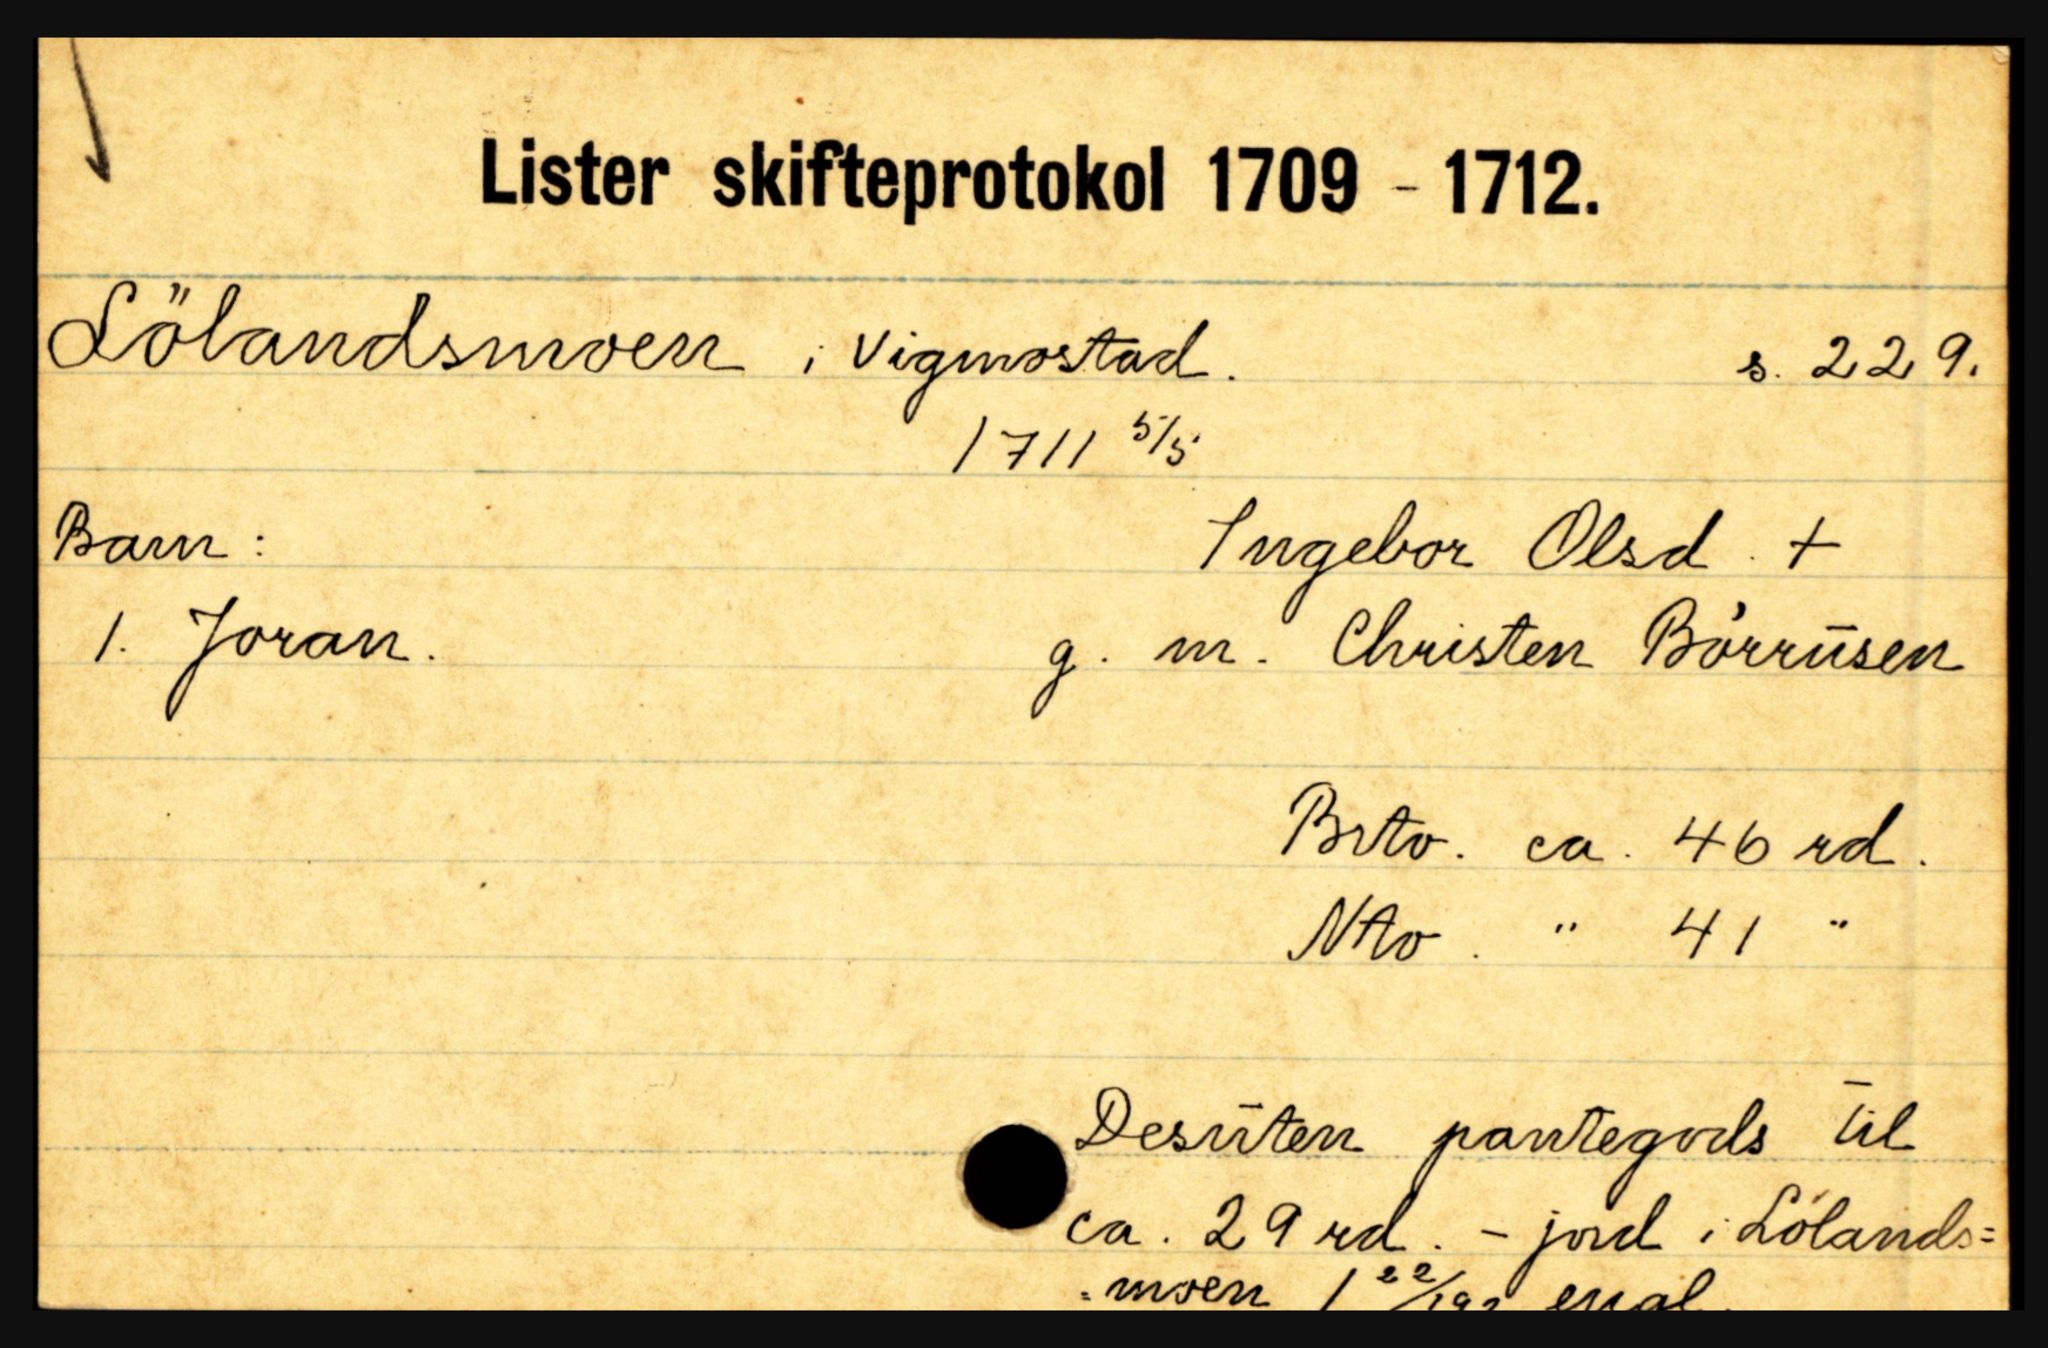 Lister skifteprotokol 1709 - 1712.
Lölandsmoen i Vigmostad. s. 229.
1711 5/5
Barn: Ingebor Olsd. +
1. Joran. g. m. Christen Börrūsen
Brto. ca. 46 rd.
Nto. " 41 "
Desūten pantegods til
ca. 29 rd. - jord i Lölands=
=moen 1 22/192 engl.